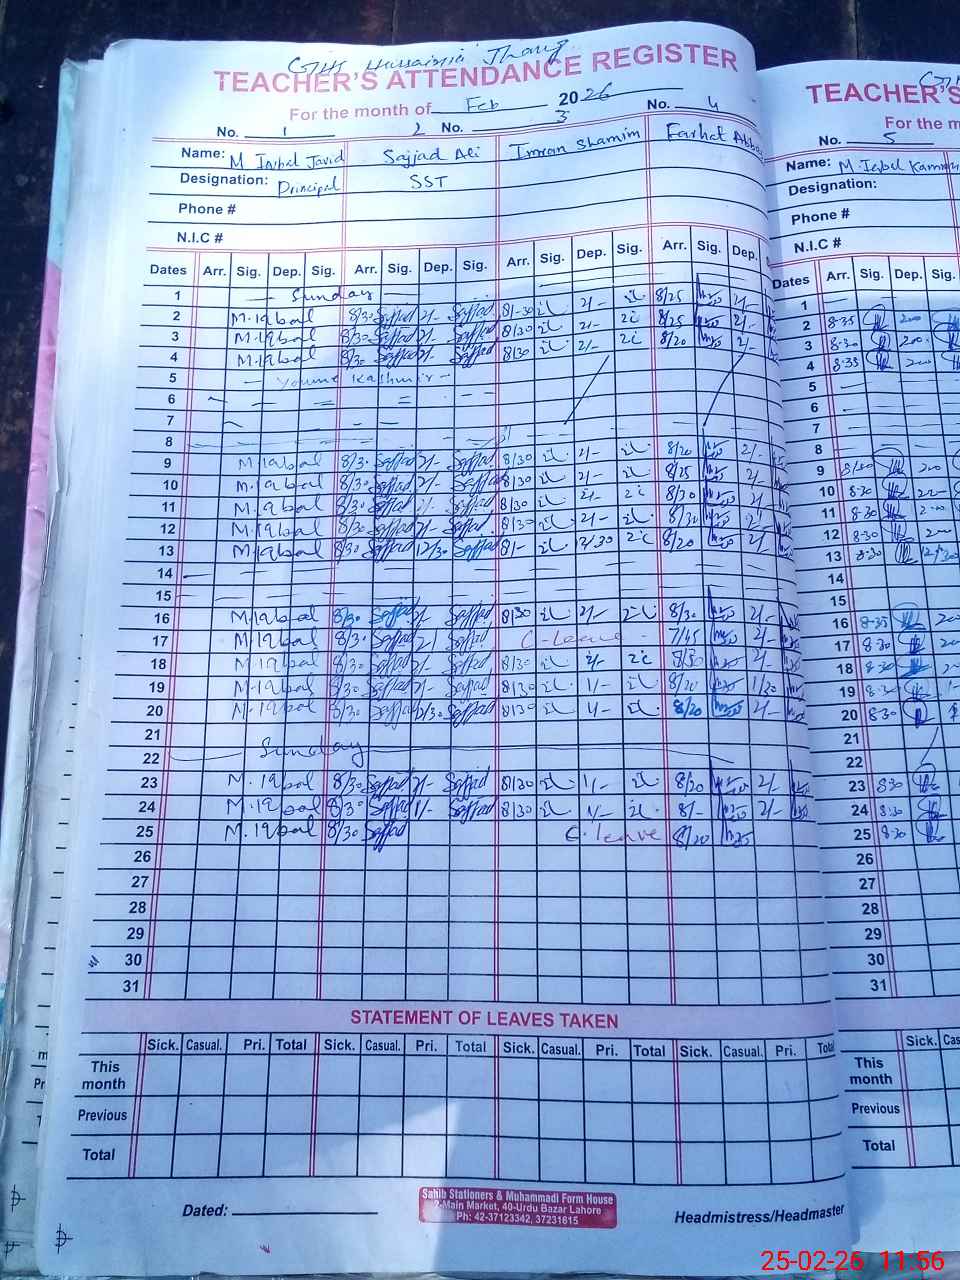 GHS Hussainia Jhang
TEACHER'S ATTENDANCE REGISTER
For the month of Feb 2026
No. 1 2 No. 3 No. 4
Name: M Iqbal Javid Sajjad Ali Imran Shamim Farhat Abbas
Designation: Principal SST
Phone #
N.I.C #
Dates Arr. Sig. Dep. Sig. Arr. Sig. Dep. Sig. Arr. Sig. Dep. Sig. Arr. Sig. Dep. S
1 — Sunday
2 M.Iqbal 8/30 Sajjad 2/- Sajjad 8/30 2/- 8/25 2/-
3 M.Iqbal 8/30 Sajjad 2/- Sajjad 8/30 2/- 8/25 2/-
4 M.Iqbal 8/30 Sajjad 2/- Sajjad 8/30 2/- 8/20 2/-
5 — Youme Kashmir -
6
7
8
9 M.Iqbal 8/30 Sajjad 2/- Sajjad 8/30 2/- 8/20 2/-
10 M.Iqbal 8/30 Sajjad 2/- Sajjad 8/30 2/- 8/25 2/-
11 M.Iqbal 8/30 Sajjad Sajjad 8/30 2/- 8/30 2/
12 M.Iqbal 8/30 Sajjad 2/- Sajjad 8/30 2/- 8/30 2/
13 M.Iqbal 8/30 Sajjad 12/30 Sajjad 8/- 12/30 8/20 2/-
14
15
16 M.Iqbal 8/30 Sajjad 2/- Sajjad 8/30 2/- 8/30 2/-
17 M.Iqbal 8/30 Sajjad 2/ Sajjad C-Leave - 7/45 2/-
18 M.Iqbal 8/30 Sajjad 2/- Sajjad 8/30 2/- 8/30 2/-
19 M.Iqbal 8/30 Sajjad 2/- Sajjad 8/30 1/- 8/20 1/30
20 M.Iqbal 8/30 Sajjad Sajjad 8/30 1/- 8/20 2/-
21
22 — Sunday —
23 M.Iqbal 8/30 Sajjad 2/- Sajjad 8/30 1/- 8/20 2/-
24 M.Iqbal 8/30 Sajjad 1/- Sajjad 8/30 1/- 8/- 2/-
25 M.Iqbal 8/30 Sajjad C. leave 8/20
26
27
28
29
30
31
STATEMENT OF LEAVES TAKEN
Sick. Casual. Pri. Total Sick. Casual. Pri. Total Sick. Casual. Pri. Total Sick. Casual. Pri. Total
This month
Previous
Total
Dated:
Sahib Stationers & Muhammadi Form House
2-Main Market, 40-Urdu Bazar Lahore
Ph: 42-37123342, 37231615
Headmistress/Headmaster
TEACHER'S
For the m
No. 5
Name: M.Iqbal Kamran
Designation:
Phone #
N.I.C #
Dates Arr. Sig. Dep. Sig.
1
2 8-35 200
3 8-30 200
4 8-35 200
5
6
7
8
9 8/30 200
10 8-30 200
11 8-30 2-00
12 8-30 200
13 8-30 12/30
14
15
16 8-35 200
17 8-30 200
18 8-30 200
19 8-30
20 8-30
21
22
23 8-30
24 8-30
25 8-30
26
27
28
29
30
31
Sick. Cas
This month
Previous
Total
25-02-26 11:56